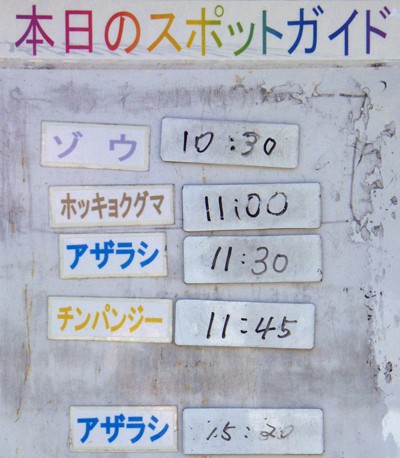 本日のスポットガイド
ゾウ 10:30
ホッキョクグマ 11:00
アザラシ 11:30
チンパンジー 11:45
アザラシ 15:20